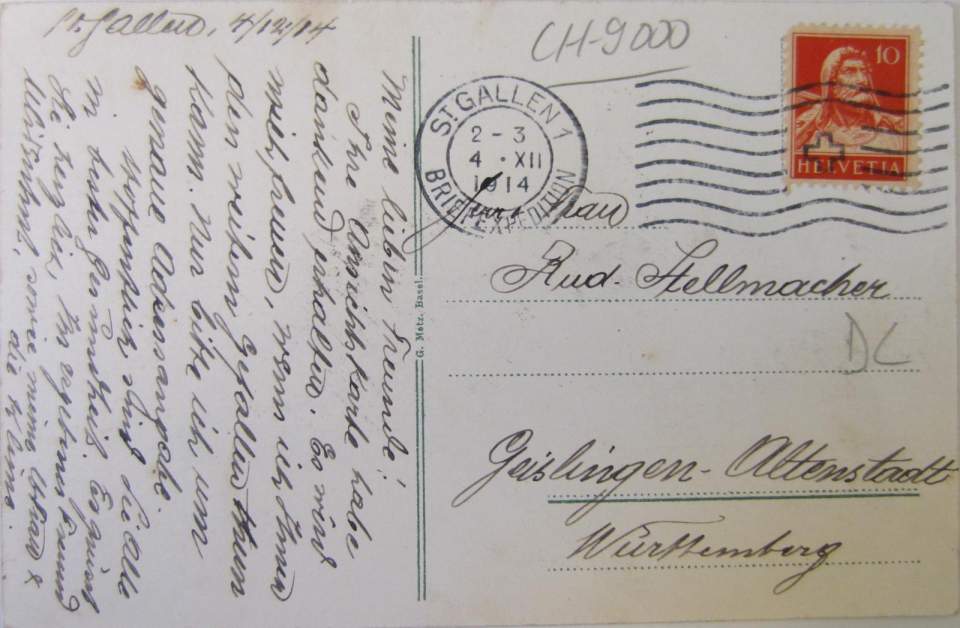 St. Gallen, 4/12/14
Meine lieben Freunde!
Ihre Ansichtkarte habe
dankend erhalten. Es wird
mich freuen, wenn ich Ihnen
den weitern Gefallen thun
kann. Nur bitte ich um
genaue Adressangabe.
Hoffentlich sind Sie alle
in bester Gesundheit. Es grüsst
Sie herzlich, Ihr ergebener Freund
sowie meine Frau &
die Kleine.
G. Metz, Basel.
CH-9000
ST GALLEN 1
2 - 3
4 · XII
1914
BRIEFEXPEDITION
10
HELVETIA
Herr & Frau
Rud. Stellmacher
DL
Geislingen-Altenstadt
Württemberg